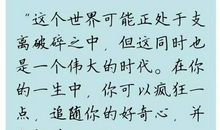 “这个世界可能正处于支
离破碎之中，但这同时也
是一个伟大的时代。在你
的一生中，你可以疯狂一
点，追随你的好奇心，并